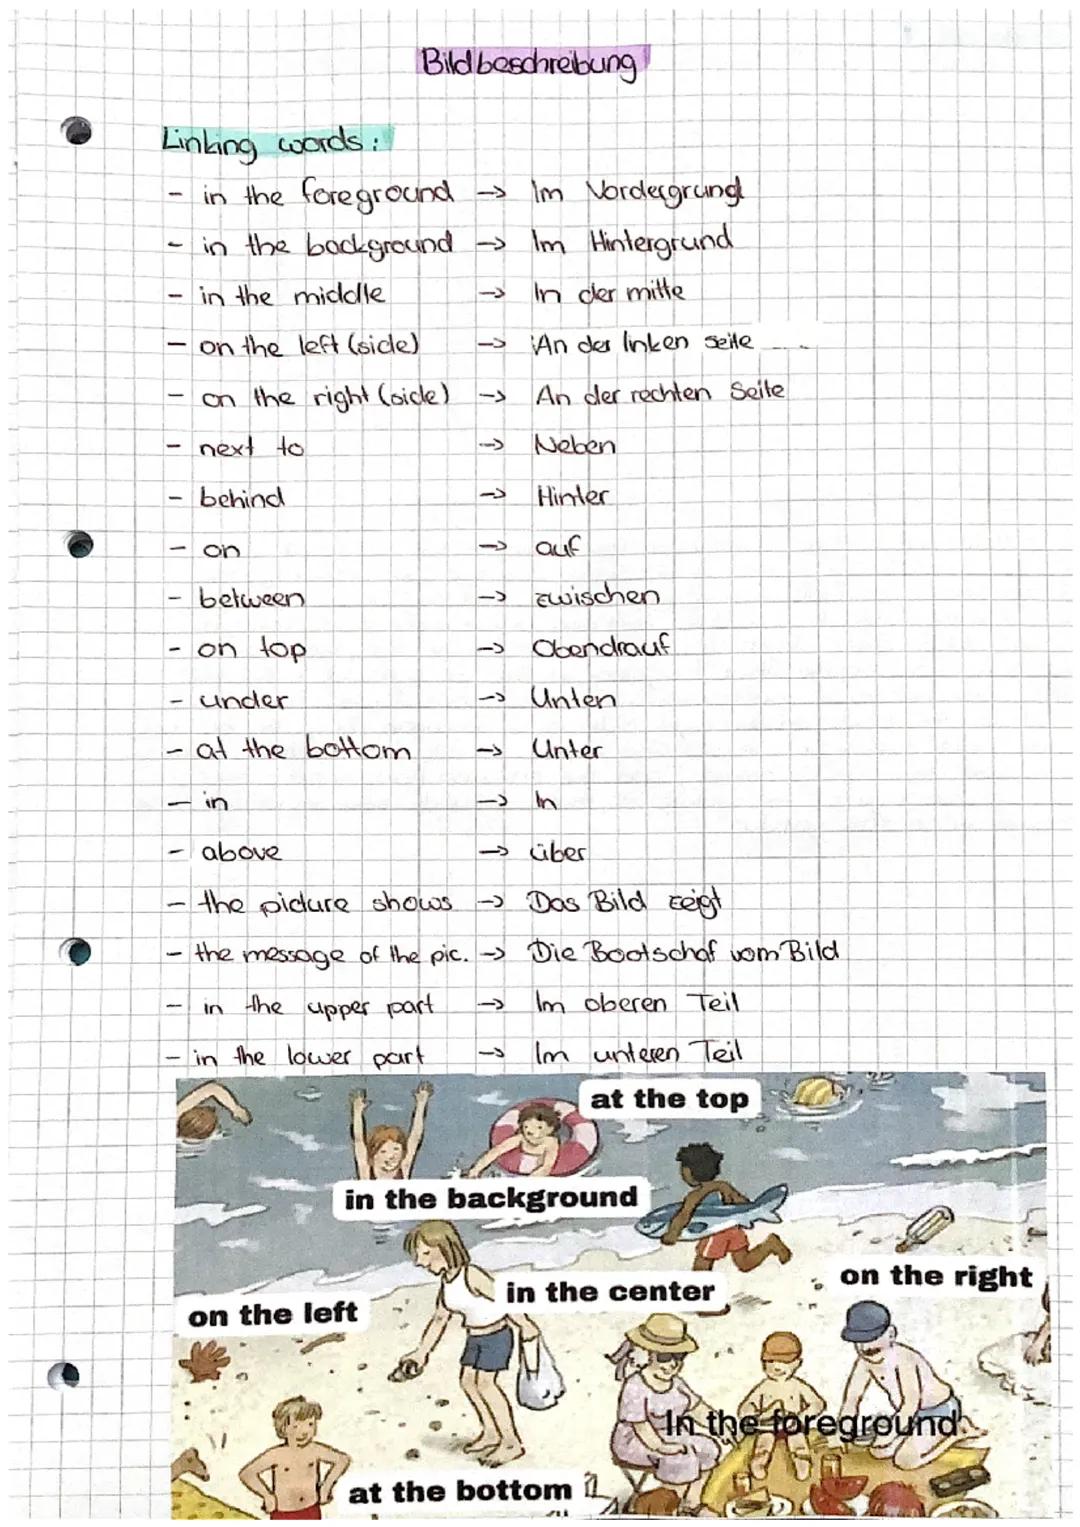 Bildbeschreibung
Linking words:
- in the foreground -> Im Vordergrund
- in the background -> Im Hintergrund
- in the middle -> In der mitte
- on the left (side) -> An der linken seite
- on the right (side) -> An der rechten Seite
- next to -> Neben
- behind -> Hinter
- on -> auf
- between -> zwischen
- on top -> Obendrauf
- under -> Unten
- at the bottom -> Unter
- in -> In
- above -> über
- the picture shows -> Das Bild zeigt
- the message of the pic. -> Die Bootschaf vom Bild
- in the upper part -> Im oberen Teil
- in the lower part -> Im unteren Teil
at the top
in the background
on the right
in the center
on the left
In the foreground
at the bottom